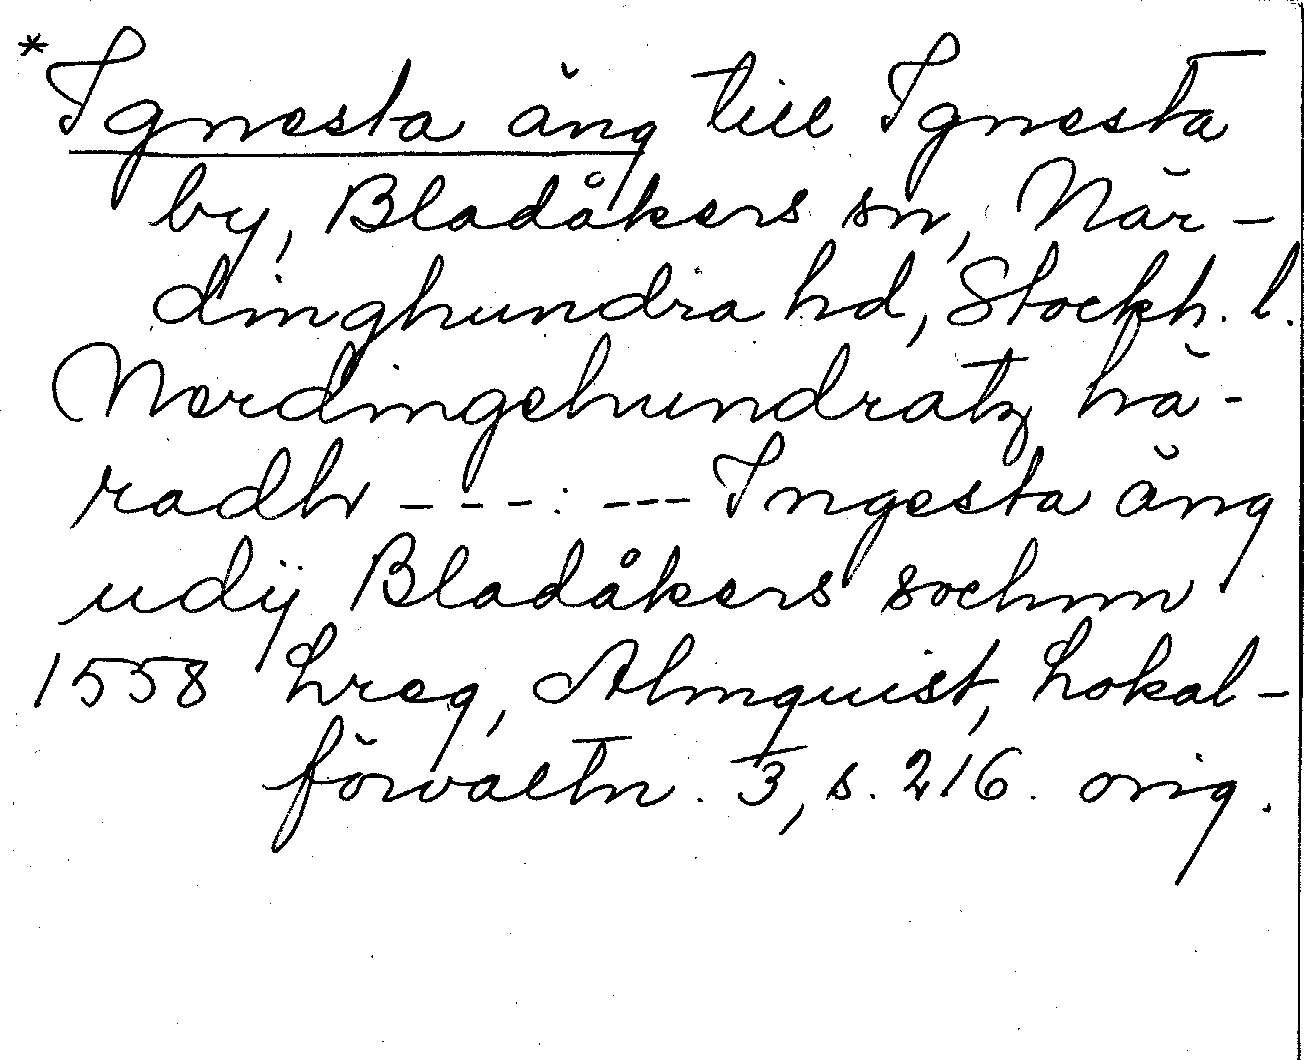 *Ignesta äng till Ignesta
by, Bladåkers sn, När-
dinghundra hd, Stockh. l.
Nerdingehundratz hä-
radh ---:--- Ingesta äng
udij Bladåkers sochnn
1558 hreg, Almquist, Lokal-
förvaltn. 3, s. 216. orig.